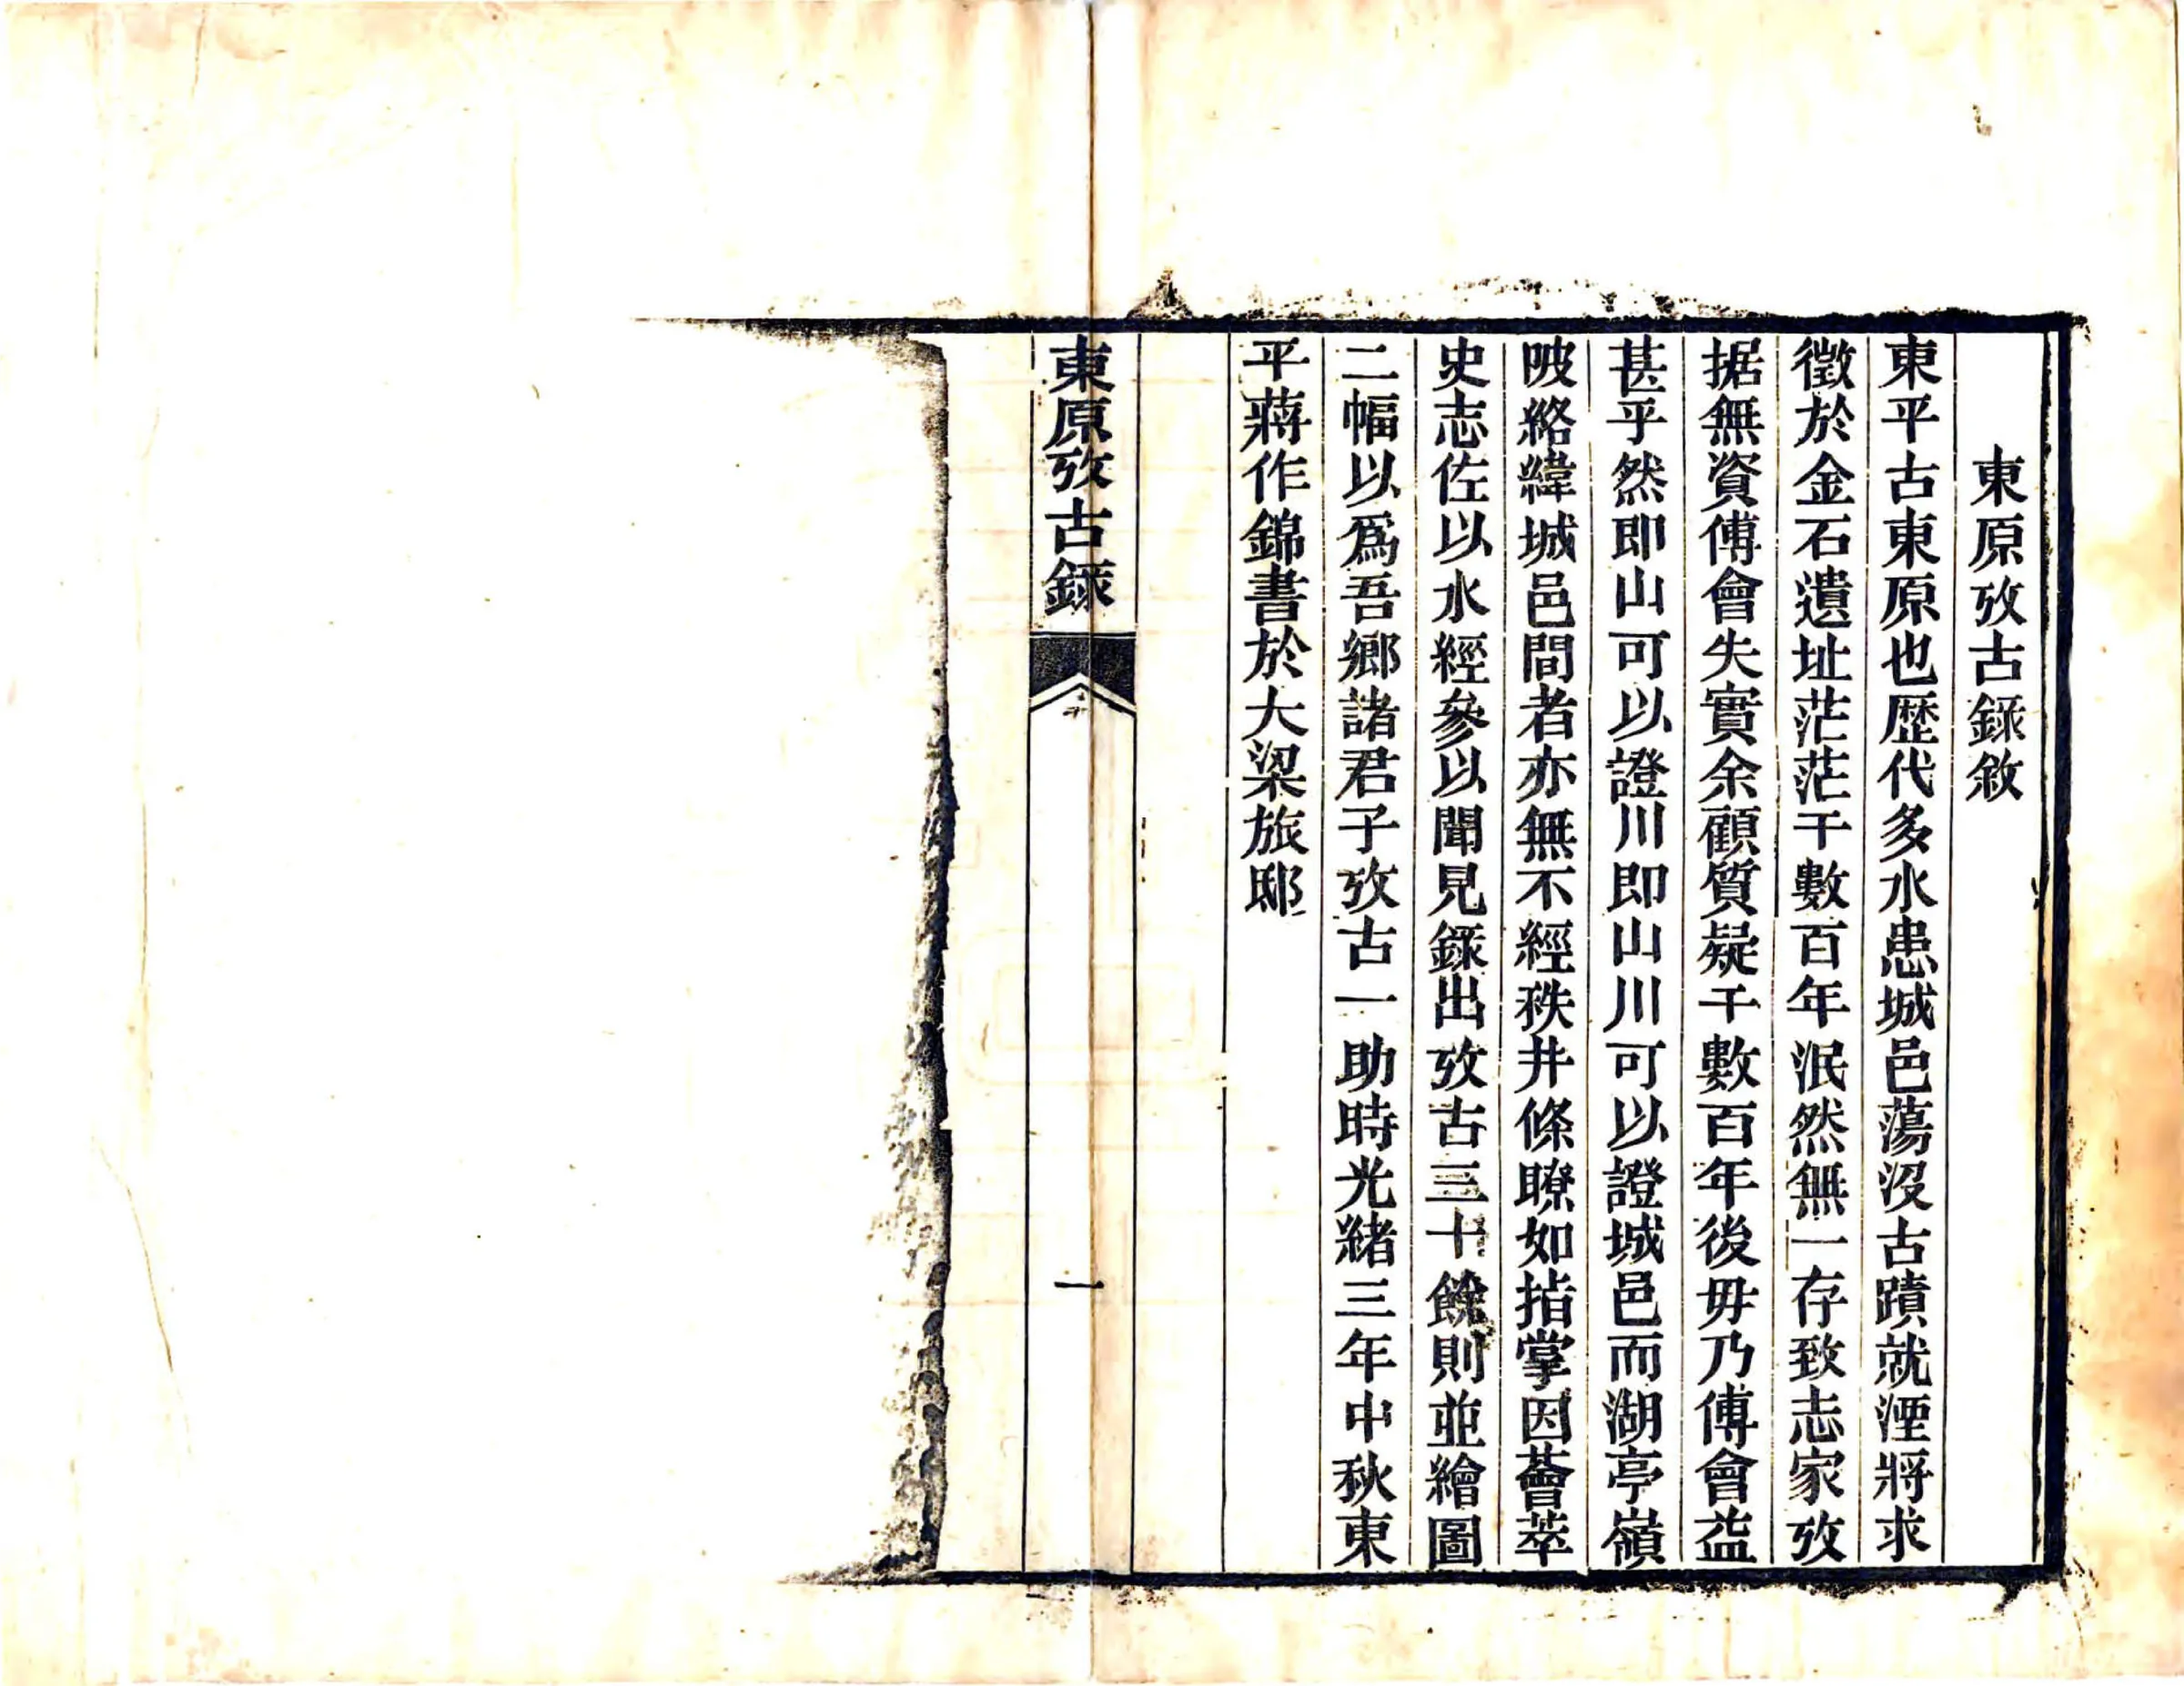 東原攷古錄敘
東平古東原也歷代多水患城邑蕩沒古蹟就湮將求
徵於金石遺址茫茫千數百年泯然無一存致志家攷
据無資傅會失實余顧質疑千數百年後毋乃傅會益
甚乎然即山可以證川即山川可以證城邑而湖亭嶺
陂絡緯城邑間者亦無不經秩井條瞭如指掌因薈萃
史志佐以水經參以聞見錄出攷古三十餘則並繪圖
二幅以爲吾鄉諸君子攷古一助時光緒三年中秋東
平蔣作錦書於大梁旅邸
東原攷古錄
一